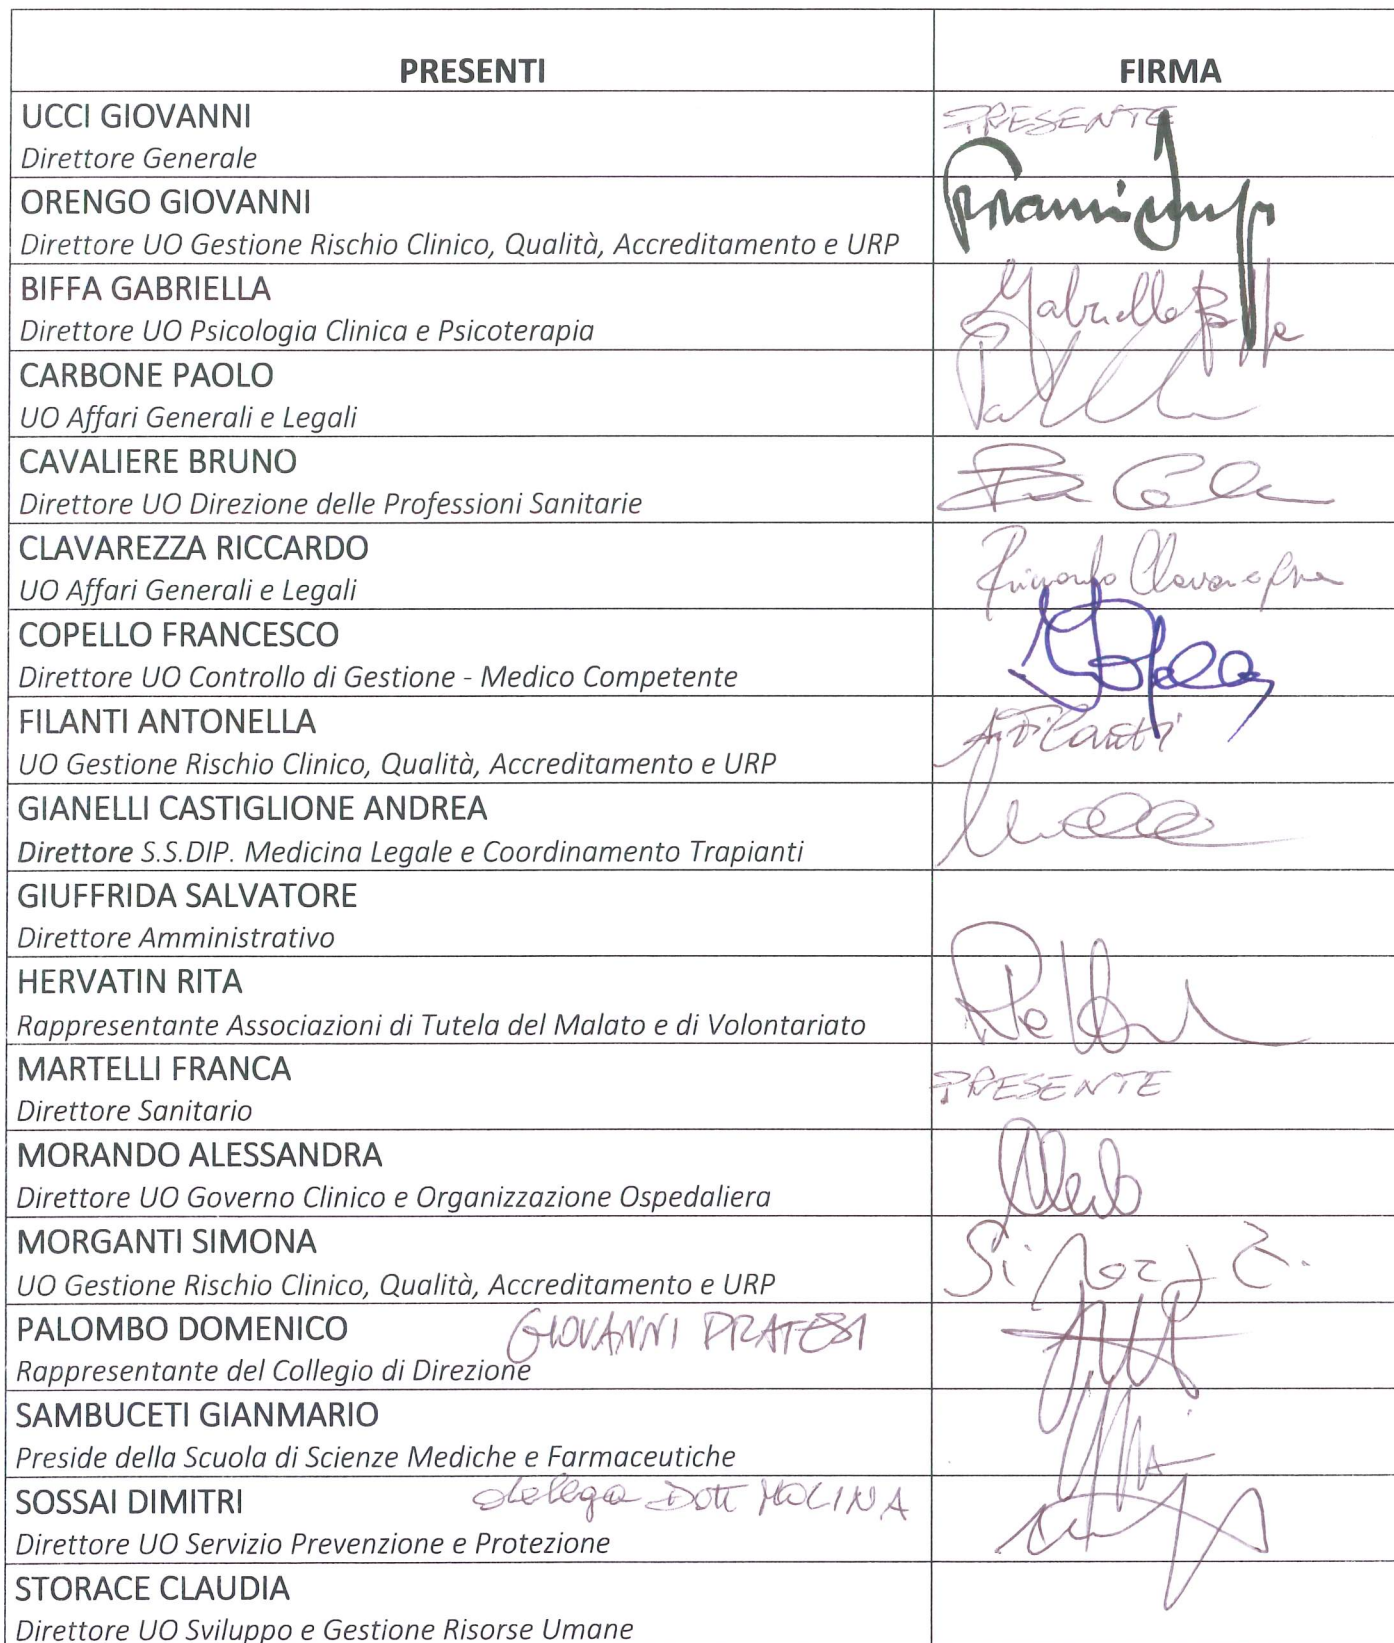 PRESENTI FIRMA
UCCI GIOVANNI PRESENTE
Direttore Generale
ORENGO GIOVANNI
Direttore UO Gestione Rischio Clinico, Qualità, Accreditamento e URP
BIFFA GABRIELLA Gabriella Biffa
Direttore UO Psicologia Clinica e Psicoterapia
CARBONE PAOLO
UO Affari Generali e Legali
CAVALIERE BRUNO
Direttore UO Direzione delle Professioni Sanitarie
CLAVAREZZA RICCARDO Riccardo Clavarezza
UO Affari Generali e Legali
COPELLO FRANCESCO
Direttore UO Controllo di Gestione - Medico Competente
FILANTI ANTONELLA A. Filanti
UO Gestione Rischio Clinico, Qualità, Accreditamento e URP
GIANELLI CASTIGLIONE ANDREA
Direttore S.S.DIP. Medicina Legale e Coordinamento Trapianti
GIUFFRIDA SALVATORE
Direttore Amministrativo
HERVATIN RITA
Rappresentante Associazioni di Tutela del Malato e di Volontariato
MARTELLI FRANCA PRESENTE
Direttore Sanitario
MORANDO ALESSANDRA
Direttore UO Governo Clinico e Organizzazione Ospedaliera
MORGANTI SIMONA
UO Gestione Rischio Clinico, Qualità, Accreditamento e URP
PALOMBO DOMENICO GIOVANNI PRATESI
Rappresentante del Collegio di Direzione
SAMBUCETI GIANMARIO
Preside della Scuola di Scienze Mediche e Farmaceutiche
SOSSAI DIMITRI delega DOTT MOLINA
Direttore UO Servizio Prevenzione e Protezione
STORACE CLAUDIA
Direttore UO Sviluppo e Gestione Risorse Umane